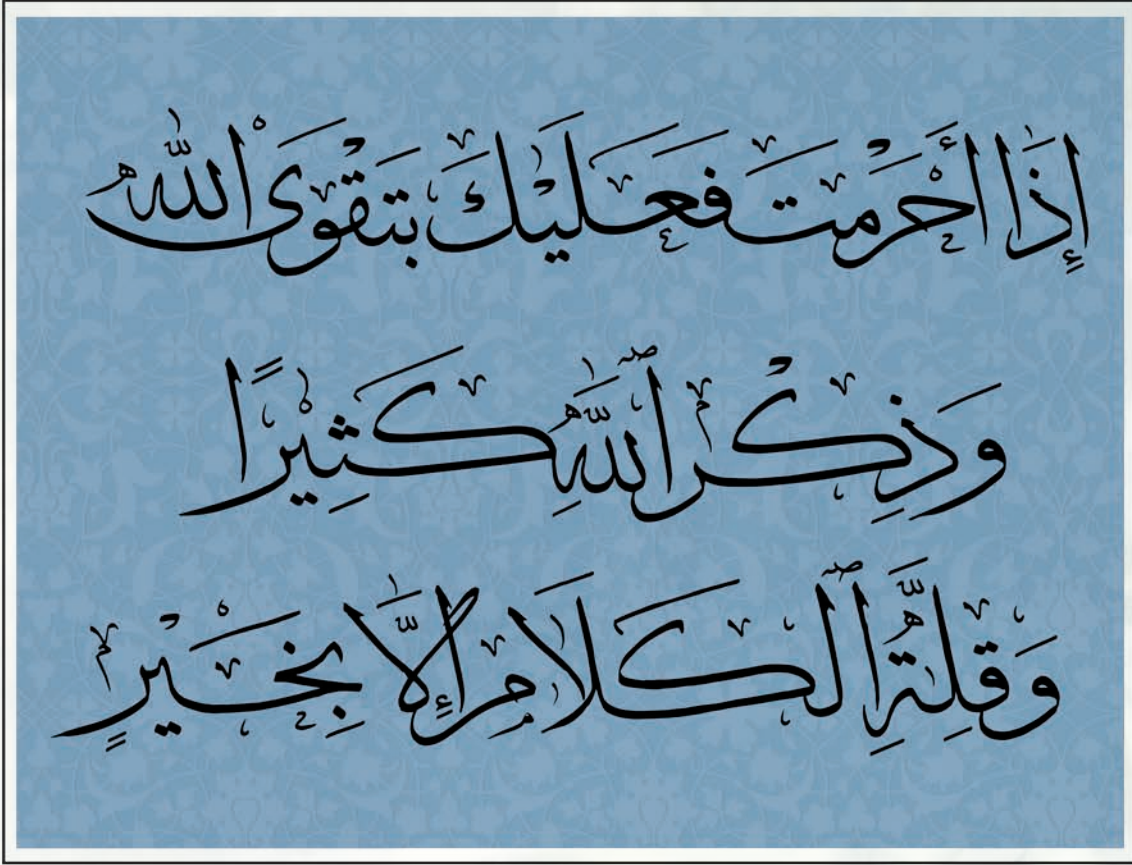 إِذَا أَحْرَمْتَ فَعَلَيْكَ بِتَقْوَى اللّٰهِ
وَذِكْرِ ٱللَّٰهِ كَثِيْرًا
وَقِلَّةِ ٱلْكَلَامِ إِلَّا بِخَيْرٍ